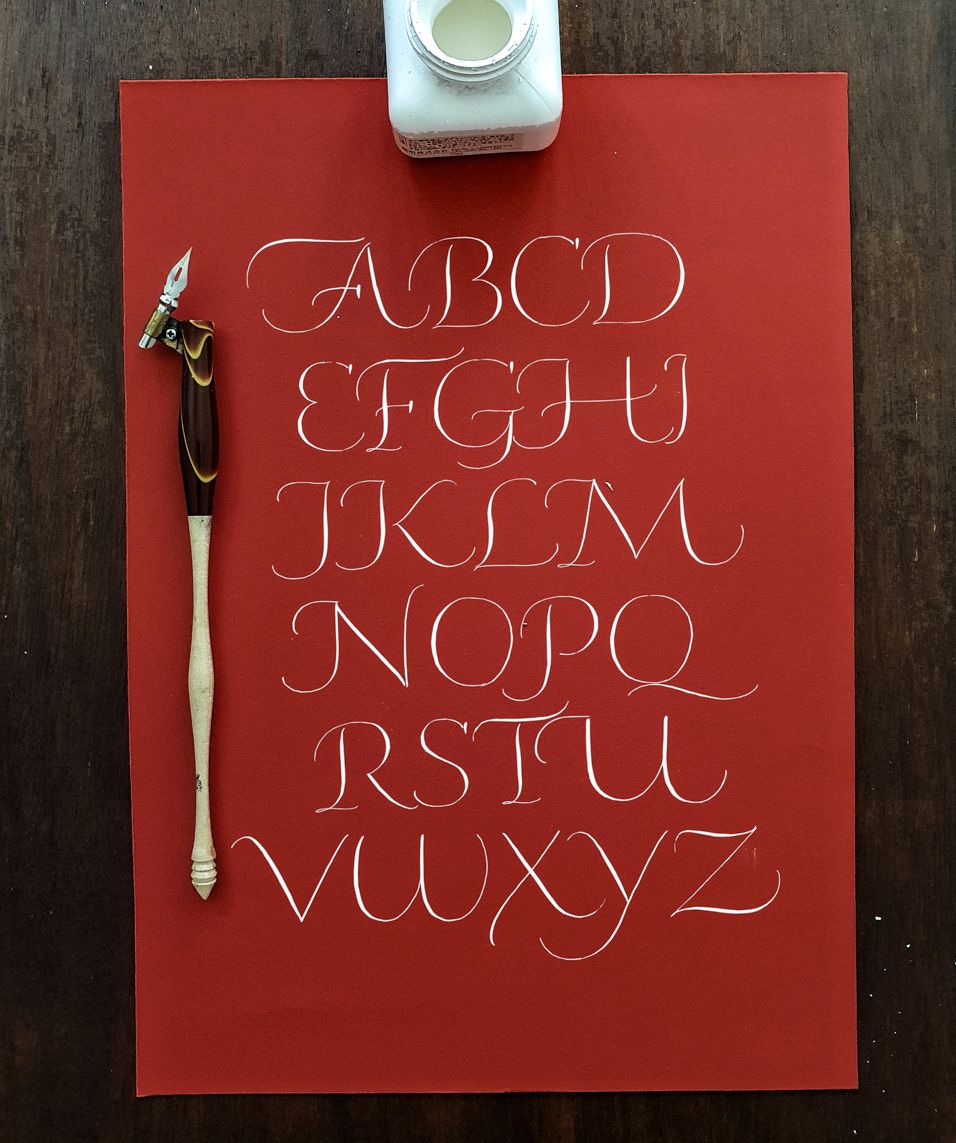 ABCD
EFGHI
JKLM
NOPQ
RSTU
VWXYZ